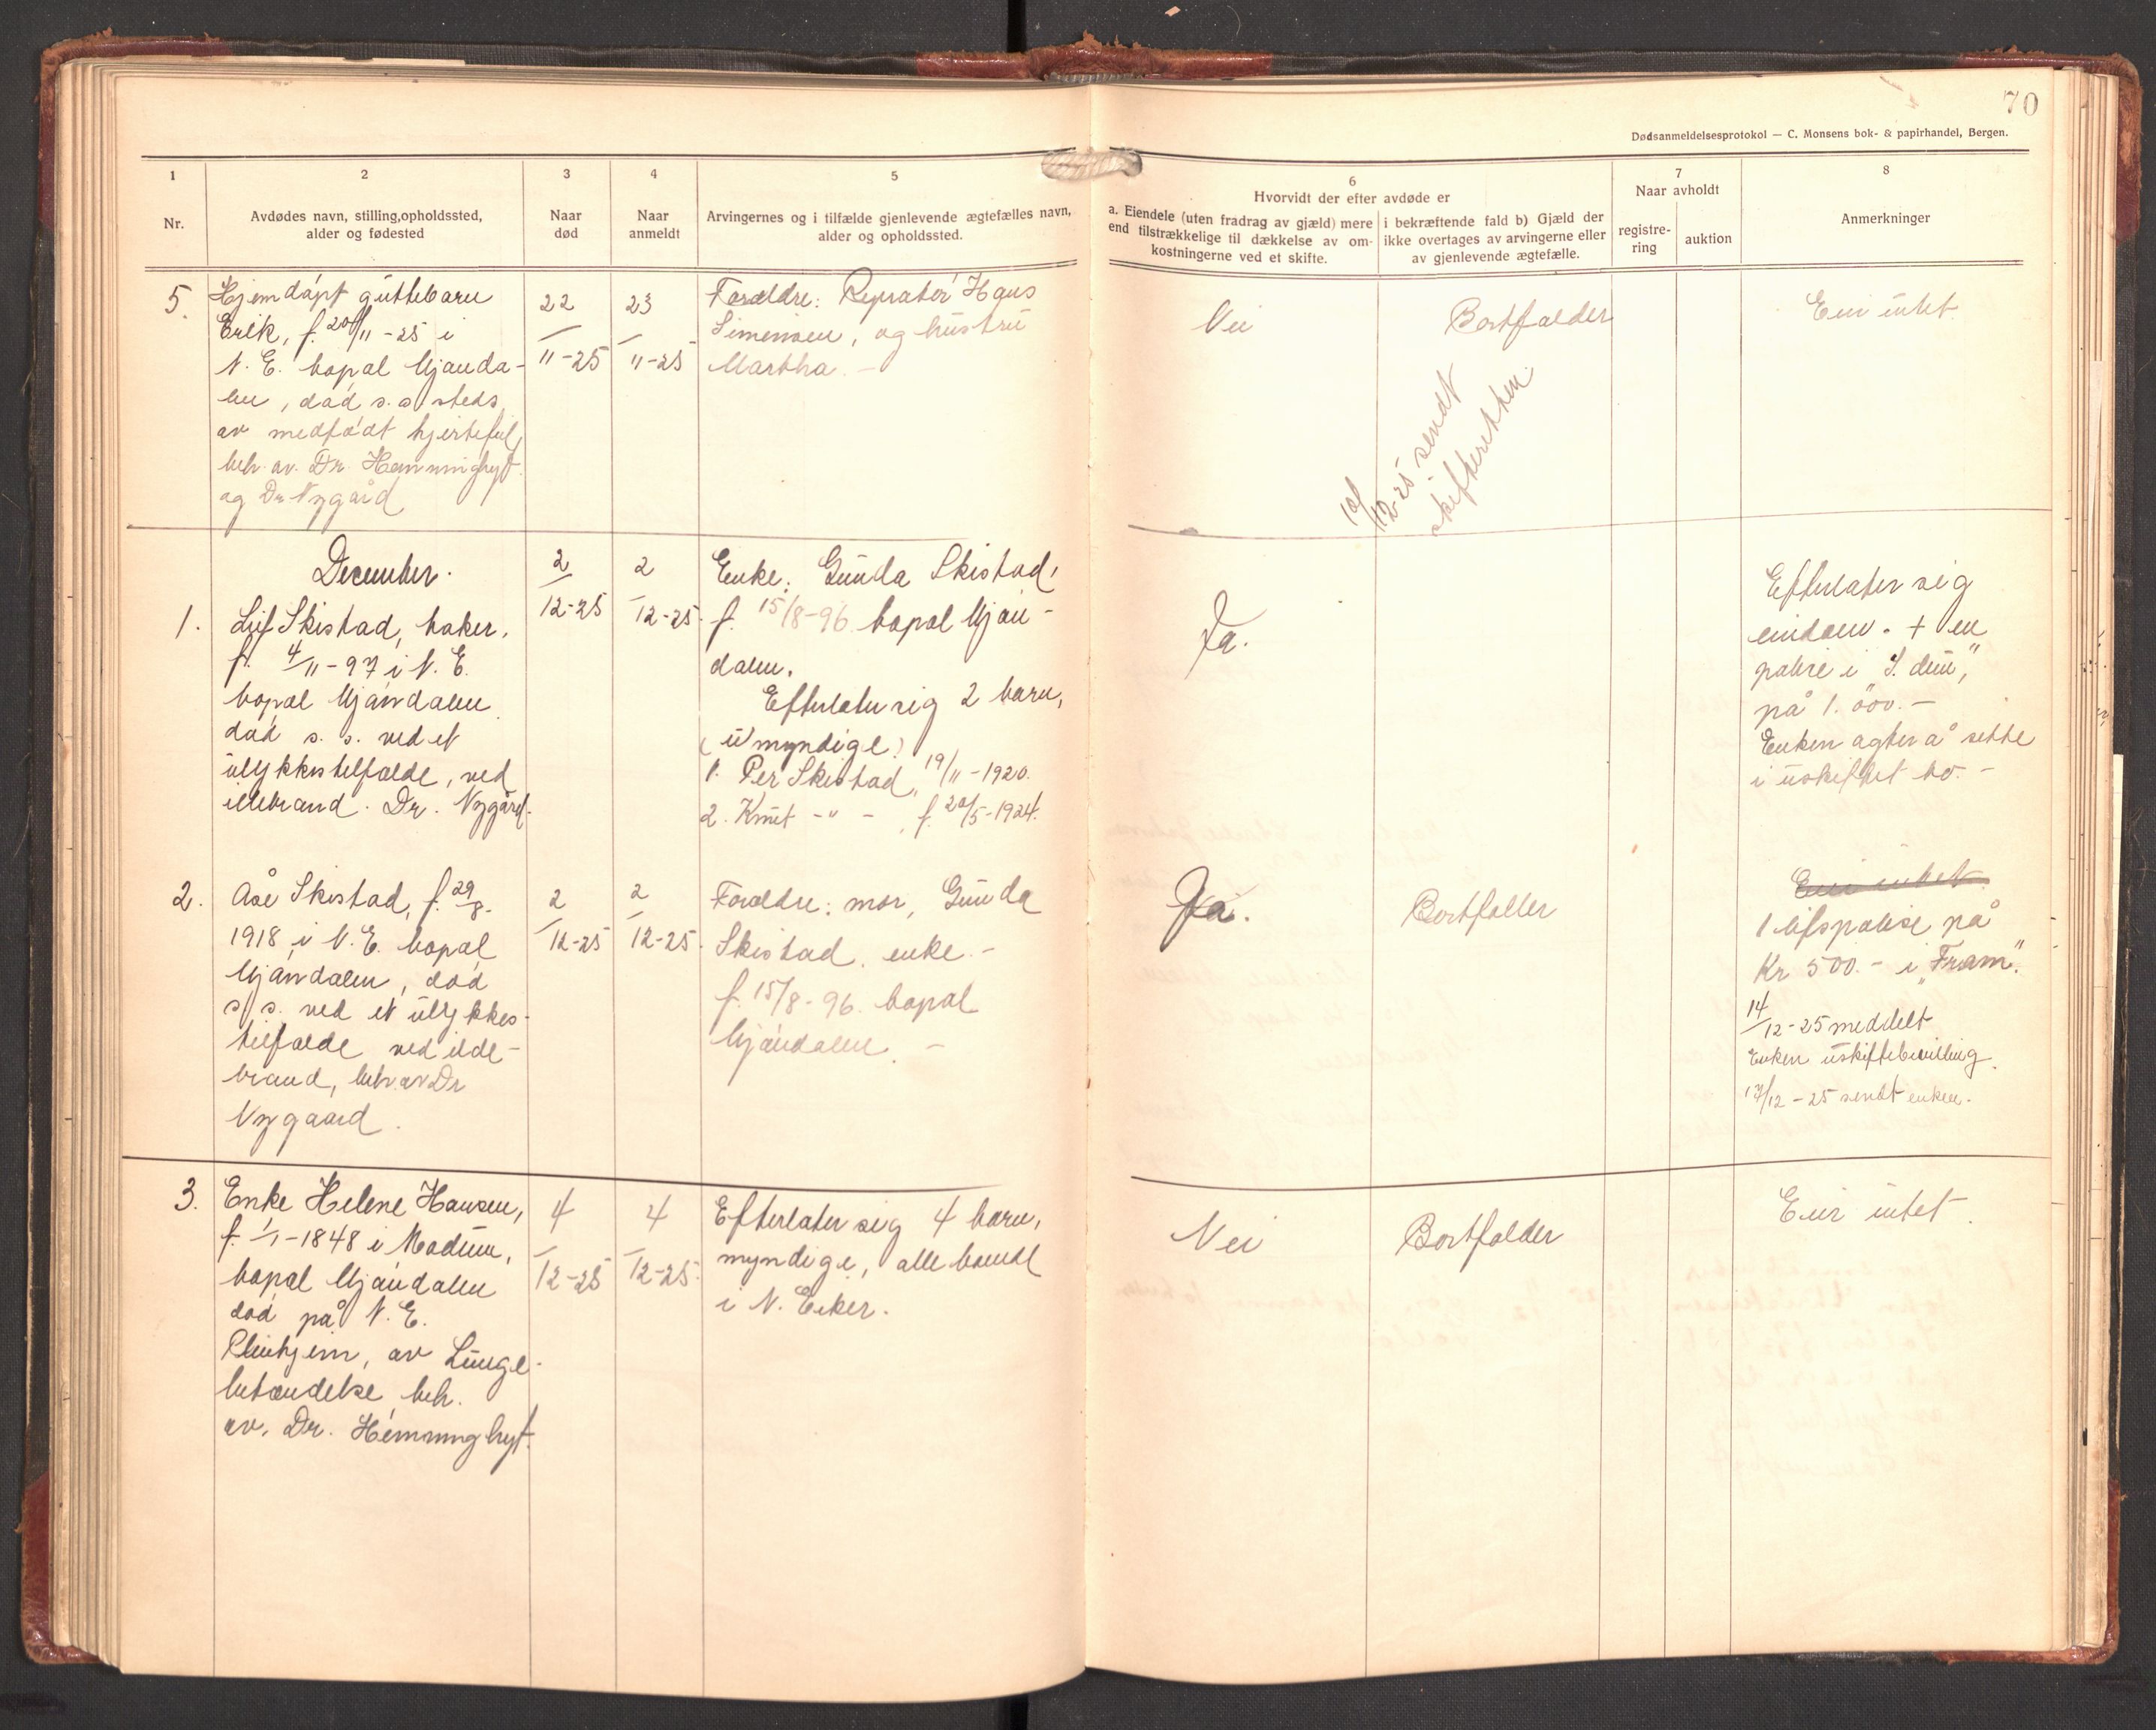 70
Dødsanmeldelsesprotokol — C. Monsens bok- & papirhandel, Bergen.
1
Nr.
2
Avdødes navn, stilling, opholdssted,
alder og fødested
3
Naar
død
4
Naar
anmeldt
5
Arvingernes og i tilfælde gjenlevende ægtefælles navn,
alder og opholdssted.
6
Hvorvidt der efter avdøde er
a. Eiendele (uten fradrag av gjæld) mere
end tilstrækkelige til dækkelse av om-
kostningerne ved et skifte.
i bekræftende fald b) Gjæld der
ikke overtages av arvingerne eller
av gjenlevende ægtefælle.
7
Naar avholdt
registre-
ring
auktion
8
Anmerkninger
5.
Hjemdøpt guttebarn
Erik, f. 20/11-25 i
N. E. bopæl Mjønda-
len, død s. s. steds
av medfødt hjertefeil,
beh. av. Dr. Hemminghyt.
og Dr Nygård
22/11-25
23/11-25
Forældre: Repratør Hans
Simensen, og hustru
Martha. -
Nei
Bortfalder
Eier intet
10/12-25 sendt
skifteretten.
December.
1.
Leif Skistad, baker,
f. 4/11-97 i N. E.
bopæl Mjøndalen
død s. s. ved et
ulykkestilfælde, ved
ildebrand. Dr. Nygård.
2/12-25
2/12-25.
Enke: Gunda Skistad,
f. 15/8-96. bopæl Mjøn-
dalen.
Efterlater sig 2 barn,
(umyndige)
1. Per Skistad, 19/11-1920.
2. Knut -"- , f. 20/5-1924.
Ja.
Efterlater sig
eiendom. + en
polise i
på 1.000.-
Enken agter å sitte
i uskiftet bo. -
2.
Åse Skistad, f. 29/8-
1918 i N. E. bopæl
Mjøndalen, død
s. s. ved et ulykkes-
tilfælde ved ilde-
brand, beh av Dr
Nygaard.
2/12-25
2/12-25.
Forældre: mor, Gunda
Skistad. enke. -
f. 15/8-96. bopæl
Mjøndalen. -
Ja.
Bortfaller
Eier intet
1 lifspolise på
Kr 500.- i "Fram".
14/12-25 meddelt
Enken uskiftebevilling.
17/12-25 sendt enken.
3.
Enke Helene Hansen,
f. 1/1-1848 i Modum,
bopæl Mjøndalen
død på N. E.
Pleiehjem, av Lunge-
betændelse, beh.
av. Dr. Hemminghyt.
4/12-25
4/12-25.
Efterlater sig 4 barn,
myndige, alle boende
i N. Eiker.
Nei
Bortfalder
Eier intet.